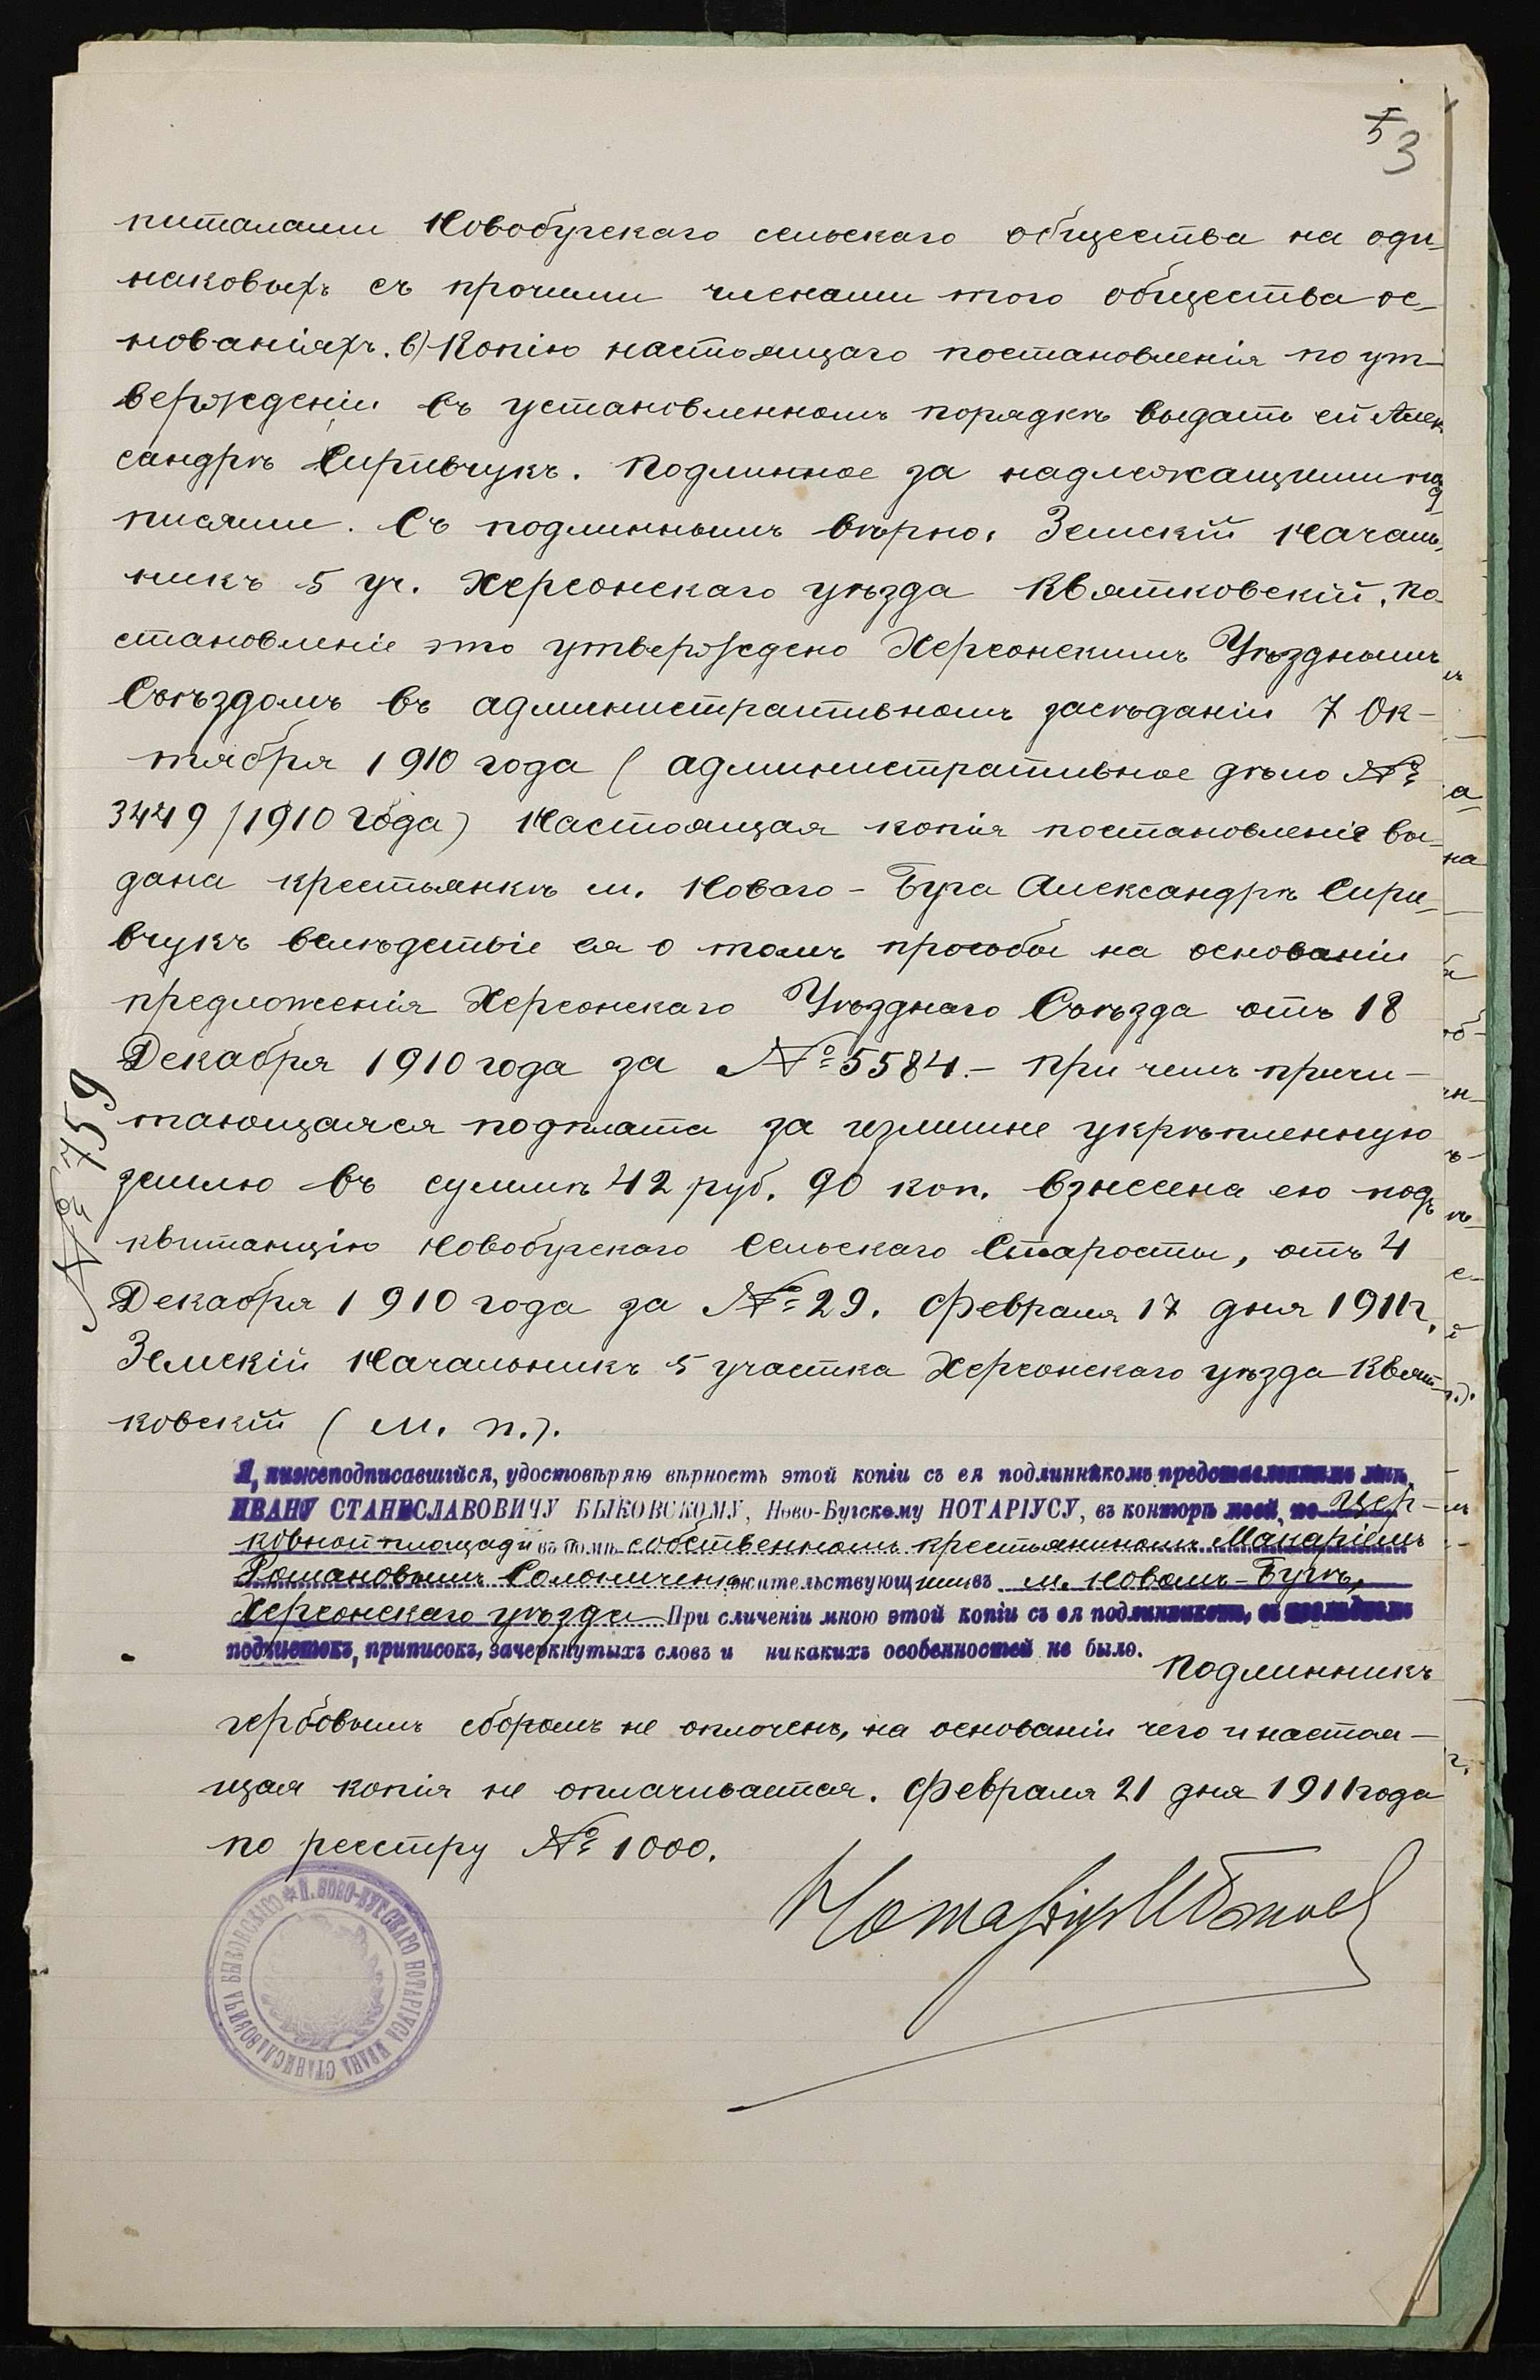 53
питалами Новобугскаго сельскаго общества на оди-
наковыхъ съ прочими членами того общества ос-
нованіяхъ. в) Копію настоящаго постановленія по ут-
вержденіи въ установленномъ порядкѣ выдать ей Алек
сандрѣ Сиривчукъ. Подлинное за надлежащими под
писями. Съ подлиннымъ вѣрно. Земскій Началь-
никъ 5 уч. Херсонскаго уѣзда Квятковскій. По-
становленіе это утверждено Херсонскимъ Уѣзднымъ
Съѣздомъ въ административномъ засѣданіи 7 Ок-
тября 1910 года (административное дѣло №
3449/1910 года) Настоящая копія постановленія вы-
дана крестьянкѣ м. Новаго-Буга Александрѣ Сири-
вчукъ вслѣдствіе ея о томъ просьбы на основаніи
предложенія Херсонскаго Уѣзднаго Съѣзда отъ 18
Декабря 1910 года за № 5584.- При чемъ причи-
тающаяся подплата за излишне укрѣпленную
землю въ суммѣ 42 руб. 90 коп. взнесена ею подъ
квитанцію Новобугскаго Сельскаго Старосты, отъ 4
Декабря 1910 года за № 29. Февраля 17 дня 1911 г.
Земскій Начальникъ 5 участка Херсонскаго уѣзда Квят-
ковскій (М. П.).
№ 759
Я, нижеподписавшійся, удостовѣряю вѣрность этой копіи съ ея подлинникомъ представленнымъ мнѣ,
ИВАНУ СТАНИСЛАВОВИЧУ БЫКОВСКОМУ, Ново-Бугскому НОТАРІУСУ, въ конторѣ моей, по Цер-
ковной площади въ домѣ собственномъ крестьяниномъ Макаріемъ
Романовымъ Соломиченко жительствующимъ въ м. Новомъ-Бугѣ,
Херсонскаго уѣзда При сличеніи мною этой копіи съ ея подлинникомъ, въ послѣднемъ
подчистокъ, приписокъ, зачеркнутыхъ словъ и никакихъ особенностей не было.
Подлинникъ
гербовымъ сборомъ не оплоченъ, на основаніи чего и настоя-
щая копія не оплачивается. Февраля 21 дня 1911 года
по реестру № 1000.
Нотаріус
П. НОВО-БУГСКАГО НОТАРІУСА ИВАНА СТАНИСЛАВОВИЧА БЫКОВСКАГО